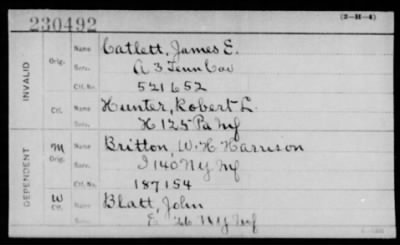 230492
(3-H-4)
INVALID
Orig. Name Catlett, James E.
Serv. A 3 Tenn Cav
Ctf. No. 521652
Ctf. Name Hunter, Robert L.
Serv. H 125 Pa Inf
DEPENDENT
M Orig. Name Britton, W. H. Harrison
Serv. I 140 N.Y. Inf
Ctf. No. 187154
W Ctf. Name Blatt, John
Serv. E. 26 N.Y. Inf